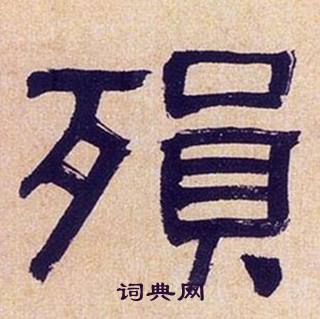 殞
词典网